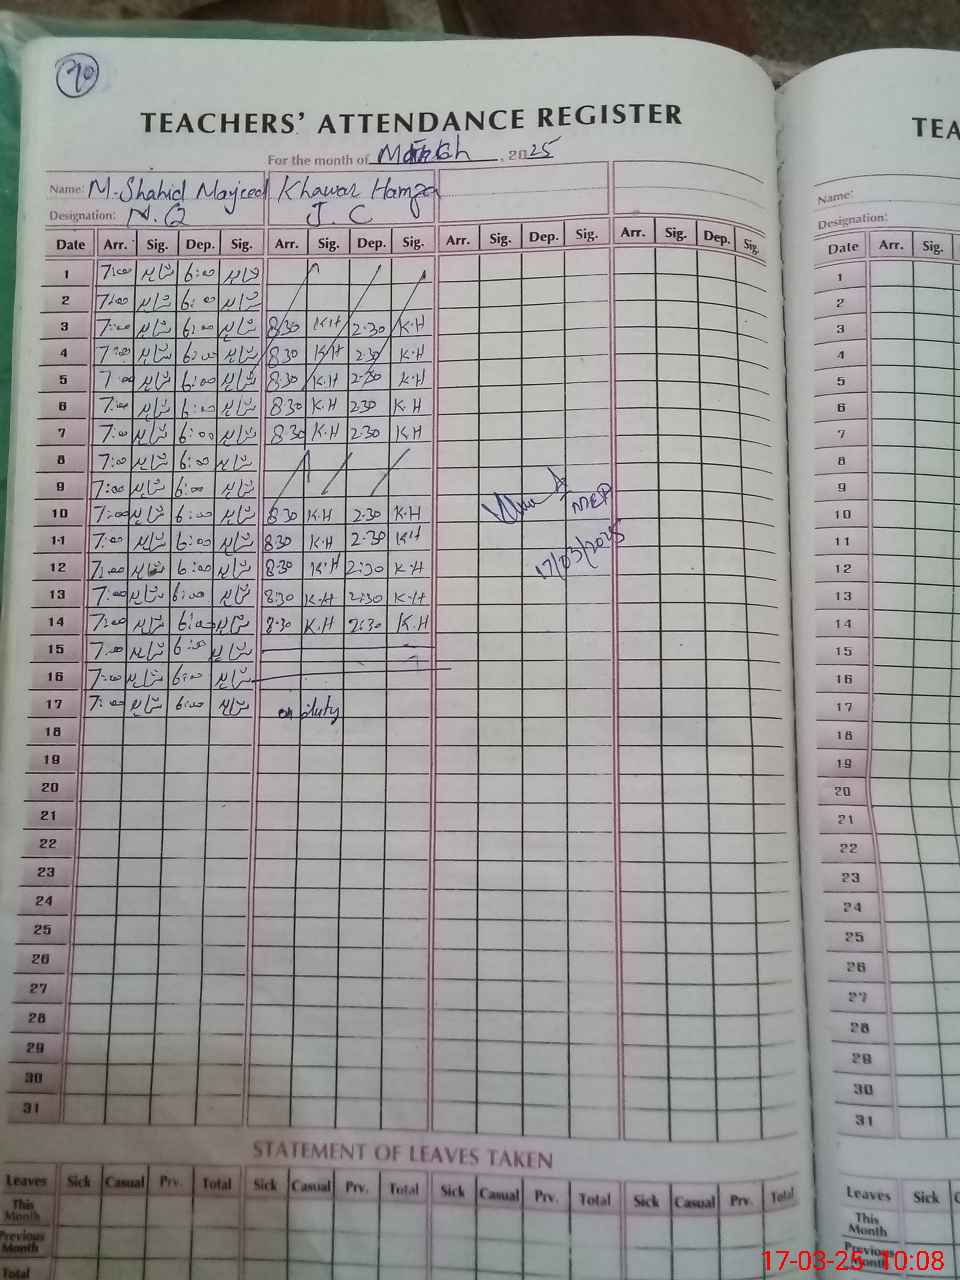 70
TEACHERS' ATTENDANCE REGISTER
For the month of March, 2025
Name: M. Shahid Majeed Khawar Hamza
Designation: N.Q J.C
Date Arr. Sig. Dep. Sig. Arr. Sig. Dep. Sig. Arr. Sig. Dep. Sig. Arr. Sig. Dep. Sig.
1 7:00 شاہد 6:00 شاہد
2 7:00 شاہد 6:00 شاہد
3 7:00 شاہد 6:00 شاہد 8:30 K.H 2:30 K.H
4 7:00 شاہد 6:00 شاہد 8:30 K.H 2:30 K.H
5 7:00 شاہد 6:00 شاہد 8:30 K.H 2:30 K.H
6 7:00 شاہد 6:00 شاہد 8:30 K.H 2:30 K.H
7 7:00 شاہد 6:00 شاہد 8:30 K.H 2:30 K.H
8 7:00 شاہد 6:00 شاہد
9 7:00 شاہد 6:00 شاہد
10 7:00 شاہد 6:00 شاہد 8:30 K.H 2:30 K.H
MEA
11 7:00 شاہد 6:00 شاہد 8:30 K.H 2:30 K.H
12 7:00 شاہد 6:00 شاہد 8:30 K.H 2:30 K.H
17/03/2025
13 7:00 شاہد 6:00 شاہد 8:30 K.H 2:30 K.H
14 7:00 شاہد 6:00 شاہد 8:30 K.H 2:30 K.H
15 7:00 شاہد 6:00 شاہد
16 7:00 شاہد 6:00 شاہد
17 7:00 شاہد 6:00 شاہد on duty
18
19
20
21
22
23
24
25
26
27
28
29
30
31
STATEMENT OF LEAVES TAKEN
Leaves Sick Casual Prv. Total Sick Casual Prv. Total Sick Casual Prv. Total Sick Casual Prv. Total
This Month
Previous Month
Total
TEA
Name:
Designation:
Date Arr. Sig.
1
2
3
4
5
6
7
8
9
10
11
12
13
14
15
16
17
18
19
20
21
22
23
24
25
26
27
28
29
30
31
Leaves Sick
This Month
Previous Month
17-03-25 10:08